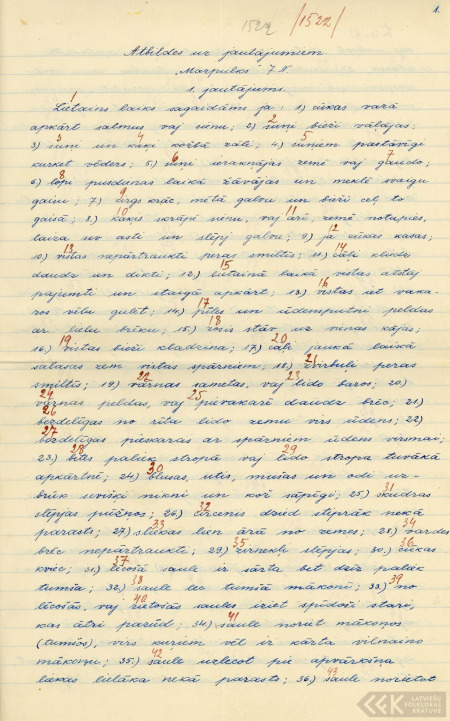 1.
1522 /1522/
Atbildes uz jautājumiem
Marpulkā 7 N.
1. jautājums.
1
Lietains laiks sagaidāms ja: 1) cūkas varā
apkārt salmus vaj sienu; 2) suņi bieži vāļājas;
3) suņi un kaķi kož̦ zāli; 4) suņiem pastāvīgi
kurkst vēders; 5) suņi ierakņājas zemē vaj gaudo;
6) lopi pusdienas laikā žāvājas un meklē svaigu
gaisu; 7) zirgs krāc, mētā galvu un bieži ceļ to
gaisā; 8) kaķis skrāpē sienu, vaj arī, zemē notupies,
laiza sev asti un slēpj galvu; 9) ja cūkas kasas;
10) vistas nepārtraukti peras smiltīs; 11) cāļi kliedz
daudz un dikti; 12) lietainā laikā vistas atstāj
pajumti un staigā apkārt; 13) vistas iet vaka-
ros vēlu gulēt; 14) pīles un ūdensputni peldas
ar lielu brēku; 15) zosis stāv uz vienas kājas;
16) vistas bieži kladzina; 17) cāļi jaukā laikā
salasas zem vistas spārniem; 18) zvirbuļi peras
smiltīs; 19) vārnas sametas, vaj lido baros; 20)
vārnas peldas, vaj pievakarē daudz brēc; 21)
bezdelīgas no rīta lido zemu virs ūdens; 22)
bezdelīgas pieskaras ar spārniem ūdens virsmai;
23) bites paliek stropā vaj lido stropa tuvākā
apkārtnē; 24) blusas, utis, mušas un odi uz-
brūk sevišķi nikni un kož sāpīgi; 25) skudras
slēpjas pūžņos; 26) circenis dzied stiprāk nekā
parasts; 27) sliekas lien ārā no zemes; 28) vardes
brēc nepārtraukti; 29) zirnekļi slēpjas; 30) cūkas
kviec; 31) lēcošā saule ir sārta bet drīz paliek
tumša; 32) saule lec tumšā mākonī; 33) no
lēcošās, vaj rietošās saules iziet spīdoši stari,
kas ātri pazūd; 34) saule noriet mākoņos
(tumšos), virs kuriem vēl ir kārta vilnaino
mākoņu; 35) saule uzlecot pie apvāršņa
liekas lielāka nekā parasts; 36) saule norietot
LATVIEŠU
FOLKLORAS
KRĀTUVE